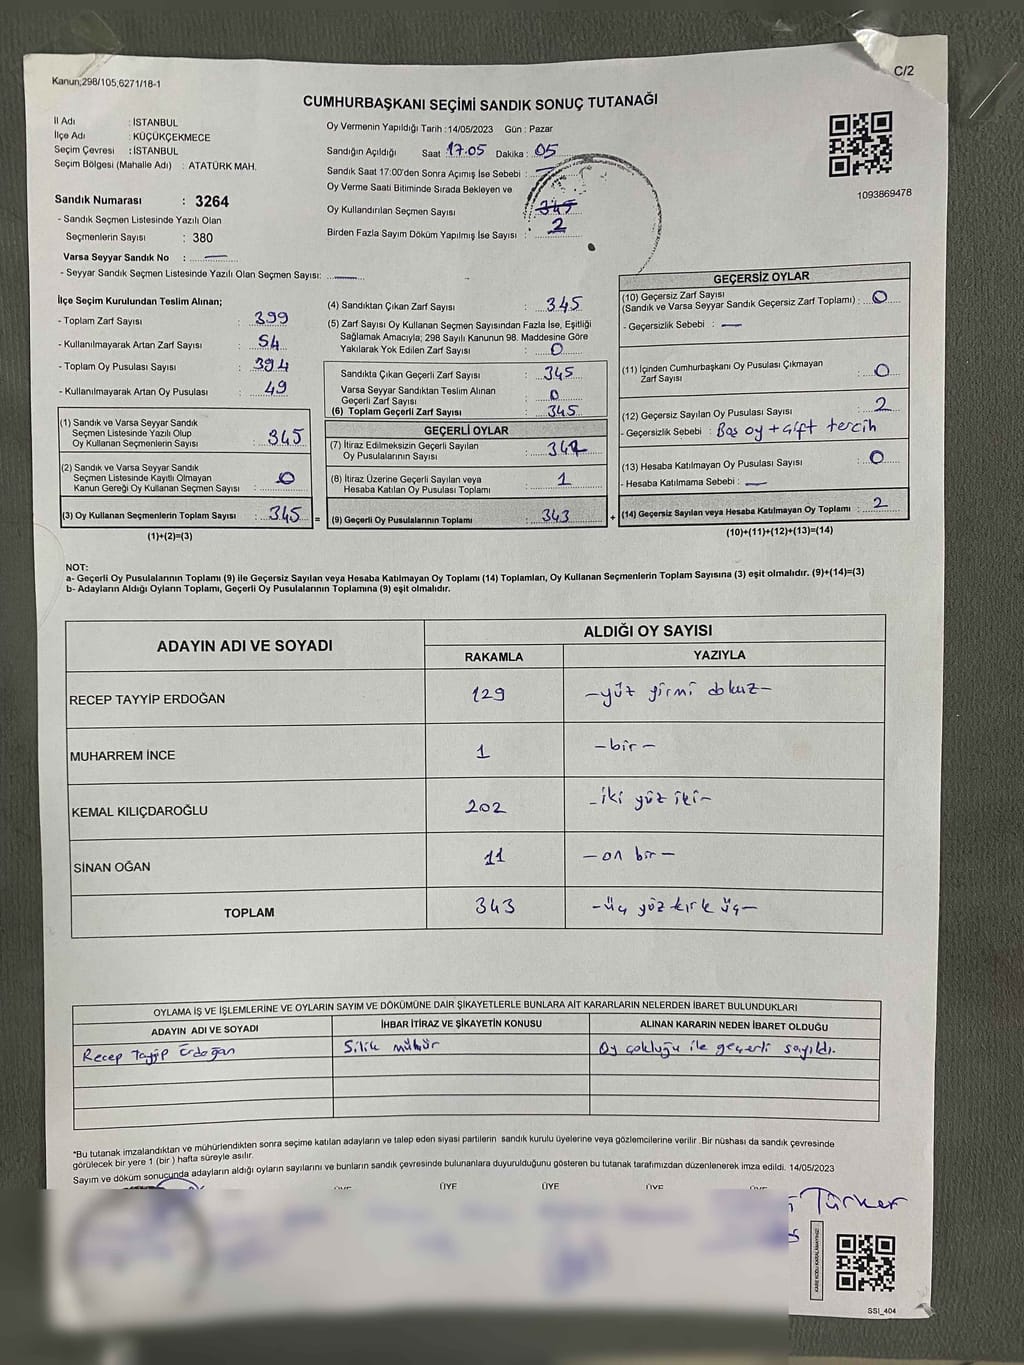 Kanun;298/105,6271/18-1
C/2
CUMHURBAŞKANI SEÇİMİ SANDIK SONUÇ TUTANAĞI
İl Adı : İSTANBUL
İlçe Adı : KÜÇÜKÇEKMECE
Seçim Çevresi : İSTANBUL
Seçim Bölgesi (Mahalle Adı) : ATATÜRK MAH.
Sandık Numarası : 3264
- Sandık Seçmen Listesinde Yazılı Olan
Seçmenlerin Sayısı : 380
Varsa Seyyar Sandık No : —
- Seyyar Sandık Seçmen Listesinde Yazılı Olan Seçmen Sayısı: —
Oy Vermenin Yapıldığı Tarih : 14/05/2023 Gün : Pazar
Sandığın Açıldığı Saat 17.05 Dakika : 05
Sandık Saat 17:00'den Sonra Açımış İse Sebebi :
Oy Verme Saati Bitiminde Sırada Bekleyen ve
Oy Kullandırılan Seçmen Sayısı : 345
Birden Fazla Sayım Döküm Yapılmış İse Sayısı : 2
1093869478
İlçe Seçim Kurulundan Teslim Alınan;
- Toplam Zarf Sayısı : 399
- Kullanılmayarak Artan Zarf Sayısı : 54
- Toplam Oy Pusulası Sayısı : 394
- Kullanılmayarak Artan Oy Pusulası : 49
(1) Sandık ve Varsa Seyyar Sandık
Seçmen Listesinde Yazılı Olup
Oy Kullanan Seçmenlerin Sayısı : 345
(2) Sandık ve Varsa Seyyar Sandık
Seçmen Listesinde Kayıtlı Olmayan
Kanun Gereği Oy Kullanan Seçmen Sayısı : 0
(3) Oy Kullanan Seçmenlerin Toplam Sayısı : 345 =
(1)+(2)=(3)
(4) Sandıktan Çıkan Zarf Sayısı : 345
(5) Zarf Sayısı Oy Kullanan Seçmen Sayısından Fazla İse, Eşitliği
Sağlamak Amacıyla; 298 Sayılı Kanunun 98. Maddesine Göre
Yakılarak Yok Edilen Zarf Sayısı : 0
Sandıkta Çıkan Geçerli Zarf Sayısı : 345
Varsa Seyyar Sandıktan Teslim Alınan
Geçerli Zarf Sayısı : 0
(6) Toplam Geçerli Zarf Sayısı : 345
GEÇERLİ OYLAR
(7) İtiraz Edilmeksizin Geçerli Sayılan
Oy Pusulalarının Sayısı : 342
(8) İtiraz Üzerine Geçerli Sayılan veya
Hesaba Katılan Oy Pusulası Toplamı : 1
(9) Geçerli Oy Pusulalarının Toplamı : 343 +
GEÇERSİZ OYLAR
(10) Geçersiz Zarf Sayısı
(Sandık ve Varsa Seyyar Sandık Geçersiz Zarf Toplamı) : 0
- Geçersizlik Sebebi : —
(11) İçinden Cumhurbaşkanı Oy Pusulası Çıkmayan
Zarf Sayısı : 0
(12) Geçersiz Sayılan Oy Pusulası Sayısı : 2
- Geçersizlik Sebebi : Boş oy + çift tercih
(13) Hesaba Katılmayan Oy Pusulası Sayısı : 0
- Hesaba Katılmama Sebebi : —
(14) Geçersiz Sayılan veya Hesaba Katılmayan Oy Toplamı : 2
(10)+(11)+(12)+(13)=(14)
NOT:
a- Geçerli Oy Pusulalarının Toplamı (9) ile Geçersiz Sayılan veya Hesaba Katılmayan Oy Toplamı (14) Toplamları, Oy Kullanan Seçmenlerin Toplam Sayısına (3) eşit olmalıdır. (9)+(14)=(3)
b- Adayların Aldığı Oyların Toplamı, Geçerli Oy Pusulalarının Toplamına (9) eşit olmalıdır.
ADAYIN ADI VE SOYADI ALDIĞI OY SAYISI
RAKAMLA YAZIYLA
RECEP TAYYİP ERDOĞAN 129 —yüz yirmi dokuz—
MUHARREM İNCE 1 —bir—
KEMAL KILIÇDAROĞLU 202 —iki yüz iki—
SİNAN OĞAN 11 —on bir—
TOPLAM 343 —üç yüz kırk üç—
OYLAMA İŞ VE İŞLEMLERİNE VE OYLARIN SAYIM VE DÖKÜMÜNE DAİR ŞİKAYETLERLE BUNLARA AİT KARARLARIN NELERDEN İBARET BULUNDUKLARI
ADAYIN ADI VE SOYADI İHBAR İTİRAZ VE ŞİKAYETİN KONUSU ALINAN KARARIN NEDEN İBARET OLDUĞU
Recep Tayyip Erdoğan Silik mühür Oy çokluğu ile geçerli sayıldı.
*Bu tutanak imzalandıktan ve mühürlendikten sonra seçime katılan adayların ve talep eden siyasi partilerin sandık kurulu üyelerine veya gözlemcilerine verilir .Bir nüshası da sandık çevresinde
görülecek bir yere 1 (bir ) hafta süreyle asılır.
Sayım ve döküm sonucunda adayların aldığı oyların sayılarını ve bunların sandık çevresinde bulunanlara duyurulduğunu gösteren bu tutanak tarafımızdan düzenlenerek imza edildi. 14/05/2023
ÜYE ÜYE ÜYE ÜYE
Türker
SSI_404